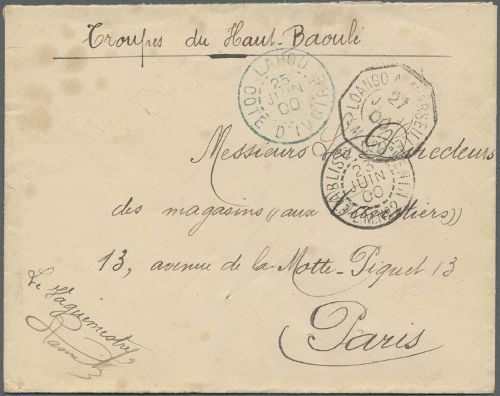 Troupes du Haut-Baoulé
LAHOU
25
JUIN
00
COTE D'IVOIRE
LOANGO A MARSEILLE
27
Messieurs Les Directeurs
des magasins "aux
13, avenue de la Motte-Piquet 13
Paris
25
JUIN
00
Le Vaguemestre,